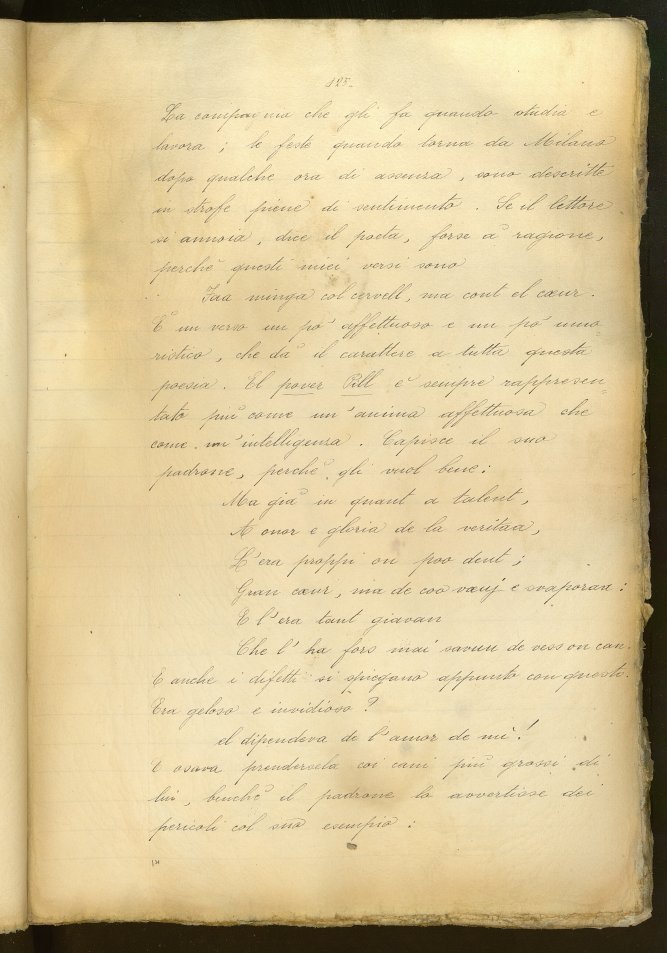 125.
La compagnia che gli fa quando studia e
lavora; le feste quando torna da Milano
dopo qualche ora di assenza, sono descritte
in strofe piene di sentimento. Se il lettore
si annoia, dice il poeta, forse à ragione,
perchè questi miei versi sono
Faa minga col cervell, ma cont el cœur.
È un verso un po' affettuoso e un po' umo
ristico, che dà il carattere a tutta questa
poesia. El pover Pill è sempre rappresen=
tato più come un'anima affettuosa che
come un'intelligenza. Capisce il suo
padrone, perchè gli vuol bene:
Ma già in quant a talent,
A onor e gloria de la veritaa,
L'era proppi on poo dent;
Gran cœur, ma de coo vœuj e svaporaa:
E l'era tant giavan
Che l'ha fors mai savuu de vess on can.
E anche i difetti si spiegano appunto con questi.
Era geloso e invidioso?
el dipendeva de l'amor de mì!
E osava prendersela coi cani più grossi di
lui, benchè il padrone lo avvertisse dei
pericoli col suo esempio: